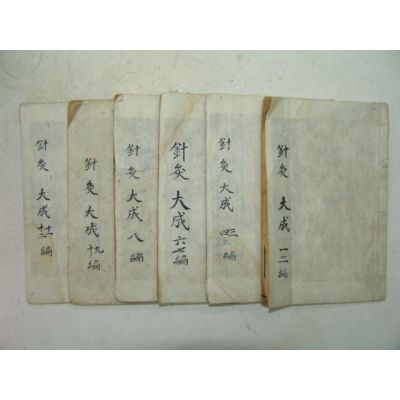 針灸 大成 一二編
針灸大成 三四五編
針灸大成六七編
針灸大成 八編
針灸大成九十編
針灸大成 十一十二編